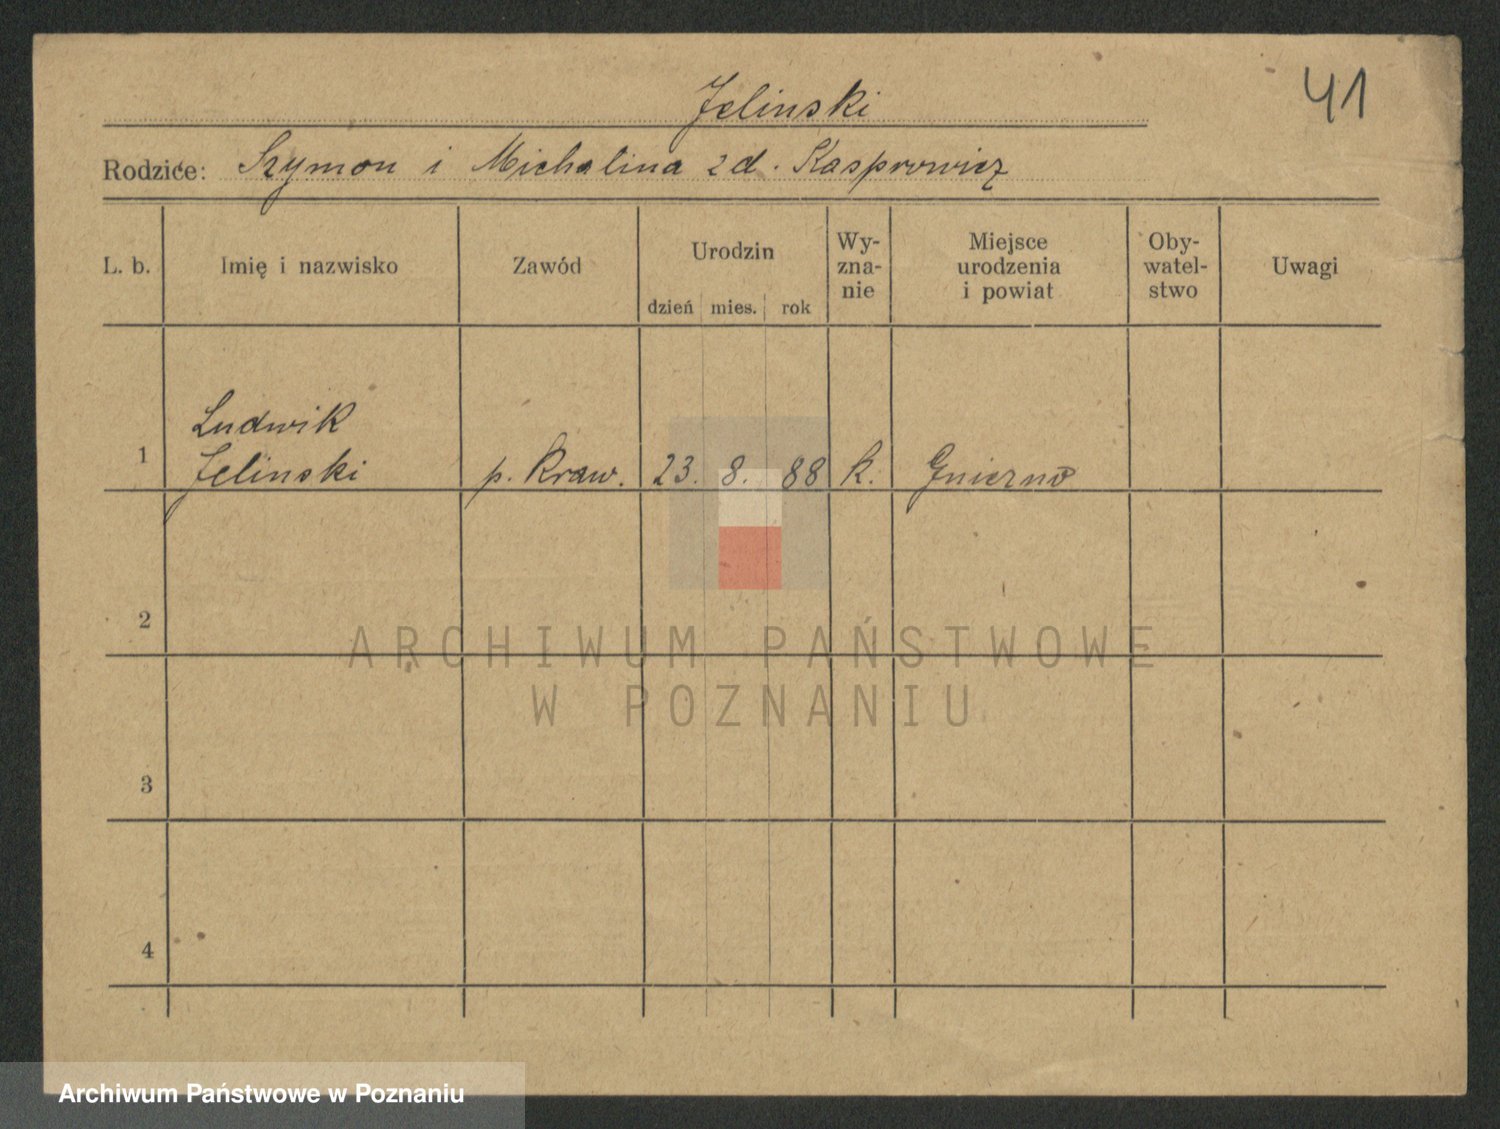 41
Jelinski
Rodzice: Szymon i Michalina zd. Kasprowicz
L. b. Imię i nazwisko Zawód Urodzin dzień mies. rok Wy-zna-nie Miejsce urodzenia i powiat Oby-watel-stwo Uwagi
1 Ludwik
Jelinski p. Kraw. 23. 8. 88 k. Gniezno
2
3
4
ARCHIWUM PAŃSTWOWE
W POZNANIU
Archiwum Państwowe w Poznaniu